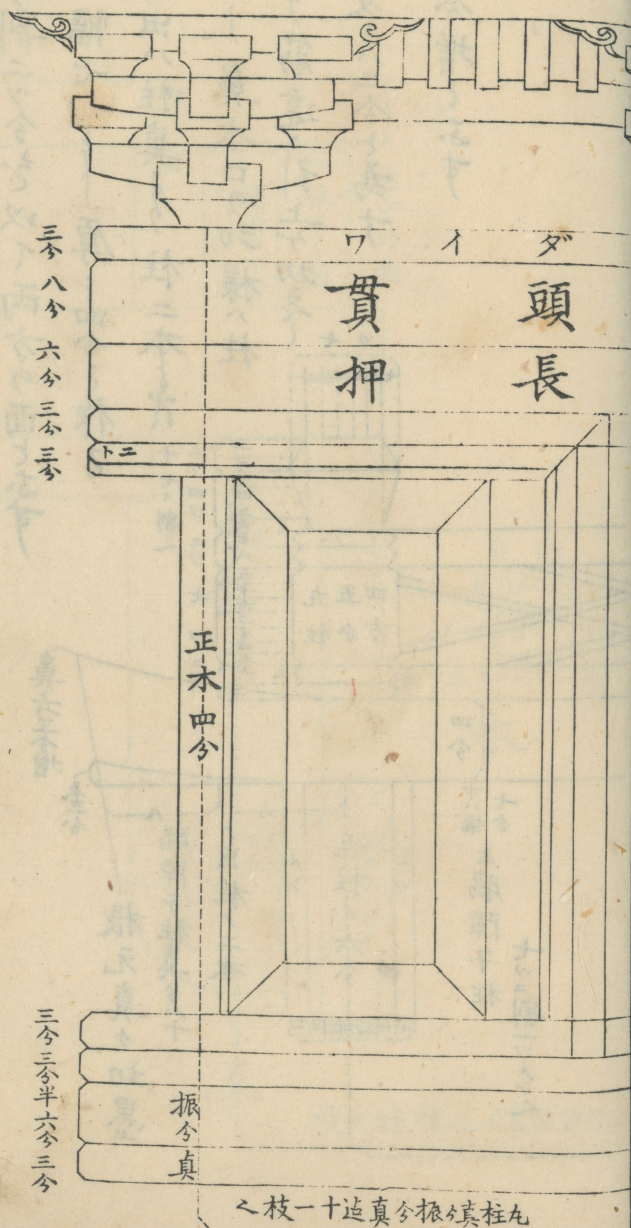 ダイワ
頭貫
長押
三分
八分
六分
三分
三分
ニト
正木四分
三分
三分半
六分
三分
振分真
丸柱真ゟ振分真迄十一枝く